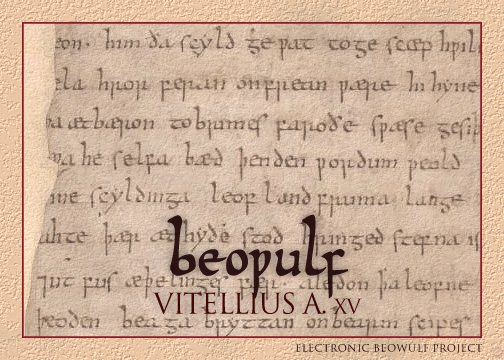 eon. him ða scyld ge ƿat to ge scæp hƿil
ela hror feran on frean ƿære hi hyne
þa ætbæron to brimes faroðe sƿæse gesiþ
ƿa he selfa bæd þenden ƿordum ƿeold
ine scyldinga leof land fruma lange
ahte þær æt hyðe stod hringed stefna is
ut fus æþelinges fær. aledon þa leofne
þeoden beaga bryttan on bearm scipes
beoƿulf
VITELLIUS A. XV
ELECTRONIC BEOWULF PROJECT